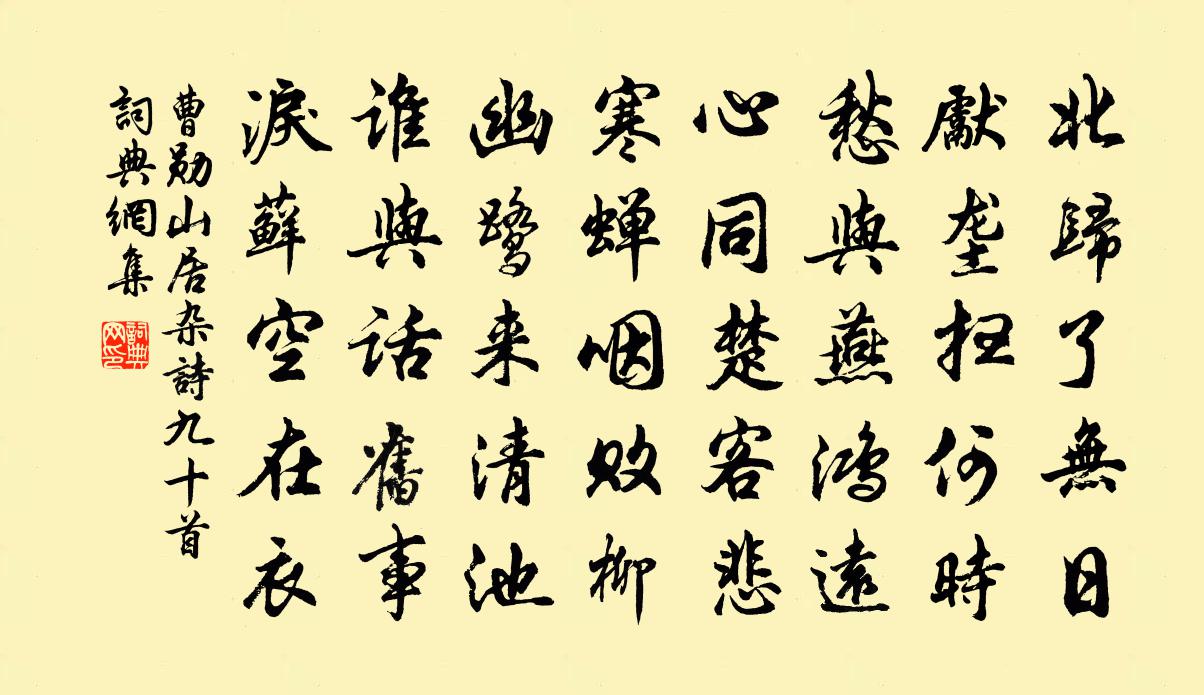 北歸了無日
獻垄扭何時
愁與燕鸿遠
心同楚客悲
寒蝉咽败柳
幽鹭来清池
谁與話舊事
淚蘚空在衣
曹勋山居杂詩九十首
詞典網集
詞典網印